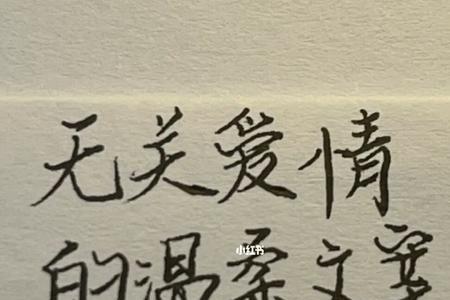 无关爱情
小红书
的温柔文案